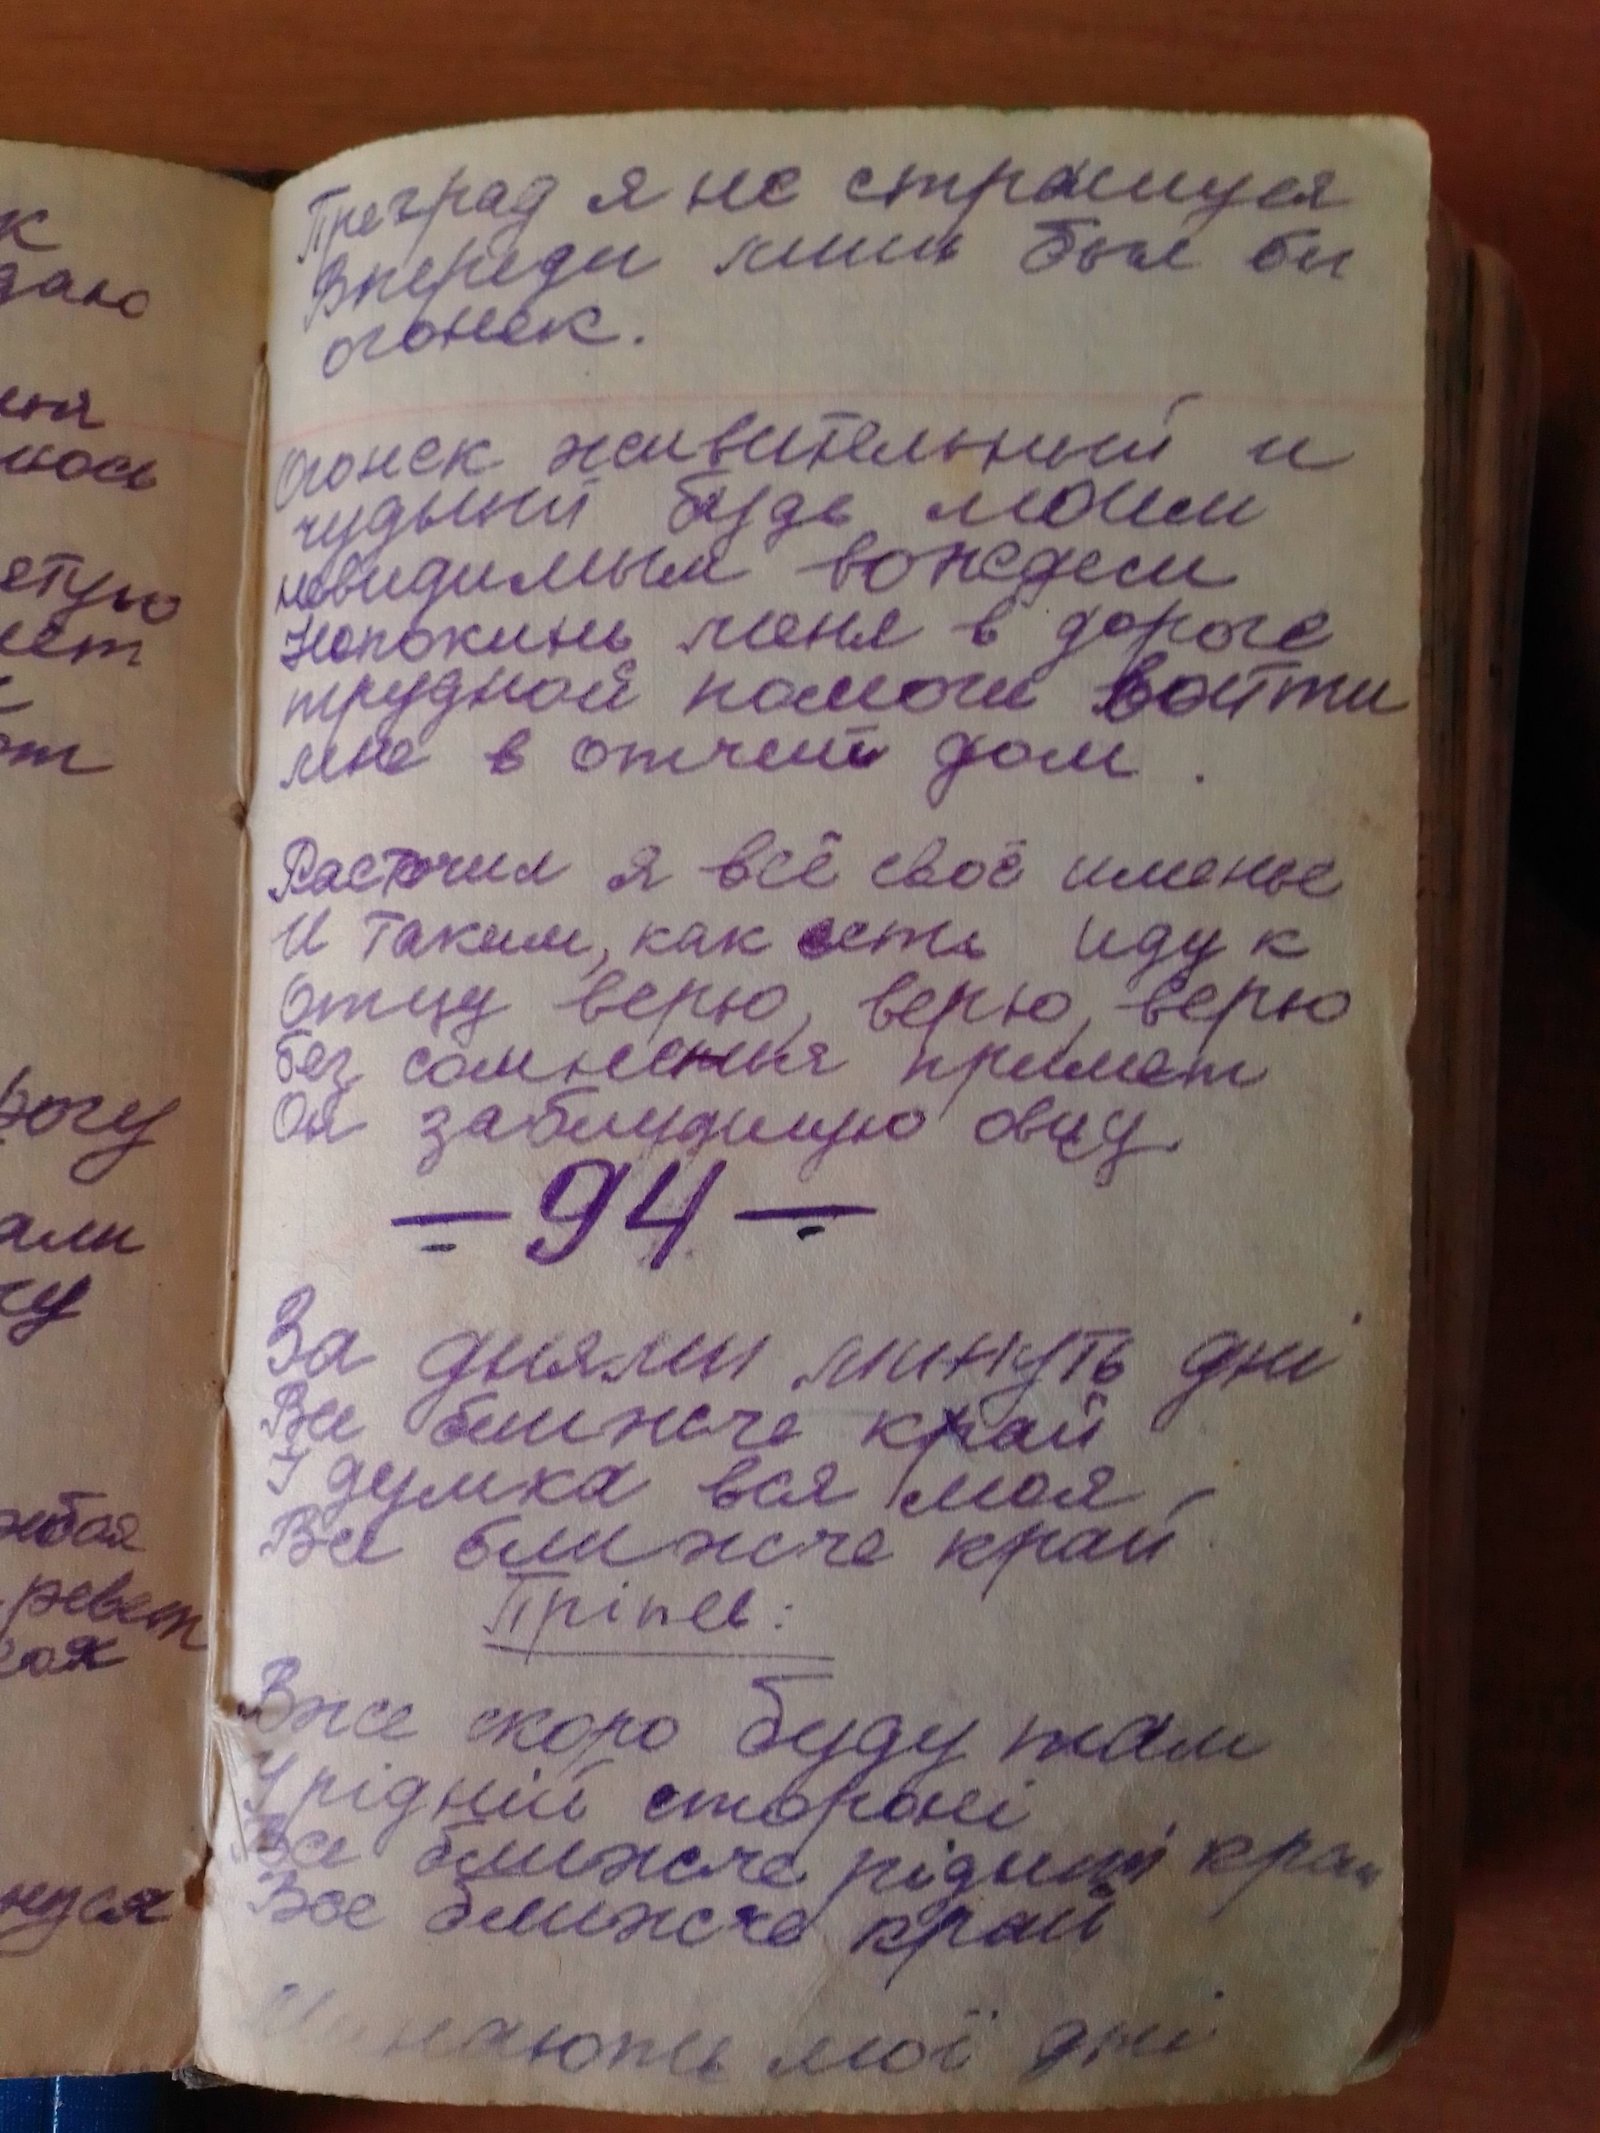 к
даю
ня
лось
ятую
нет
от
рогу
али
чу
живая
ревет
гоя
нуся
Преград я не страшуся
Впереди лишь был бы
огонек.
Огонек живительный и
чудный будь моим
невидимым вождем
Непокинь меня в дороге
трудной помоги войти
мне в отчий дом.
Расточил я всё своё именье
И таким, как есть иду к
Отцу верю, верю, верю
без сомненья примет
Он заблудшую овцу.
— 94 —
За днями минуть дні
Все ближче край
І думка вся моя
Все ближче край
Пріпев:
Вже скоро буду там
У рідній стороні
Все ближче рідний край
Все ближче край
Минають мої дні